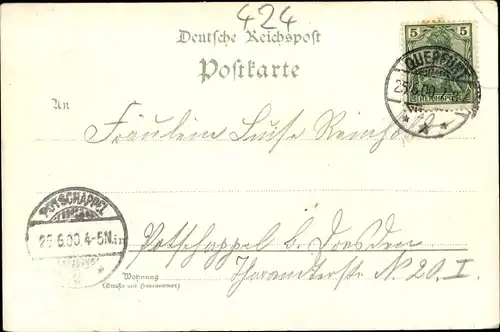 424
Deutsche Reichspost
Postkarte
5 5
QUERFURT
25.6.00
REICHSPOST
An
Fräulein Luise Reinhold
POTSCHAPPEL
25.6.00.4-5N.
in Potschappel b. Dresden
Wohnung
(Straße und Hausnummer)
Tharandterstr N. 20. I.